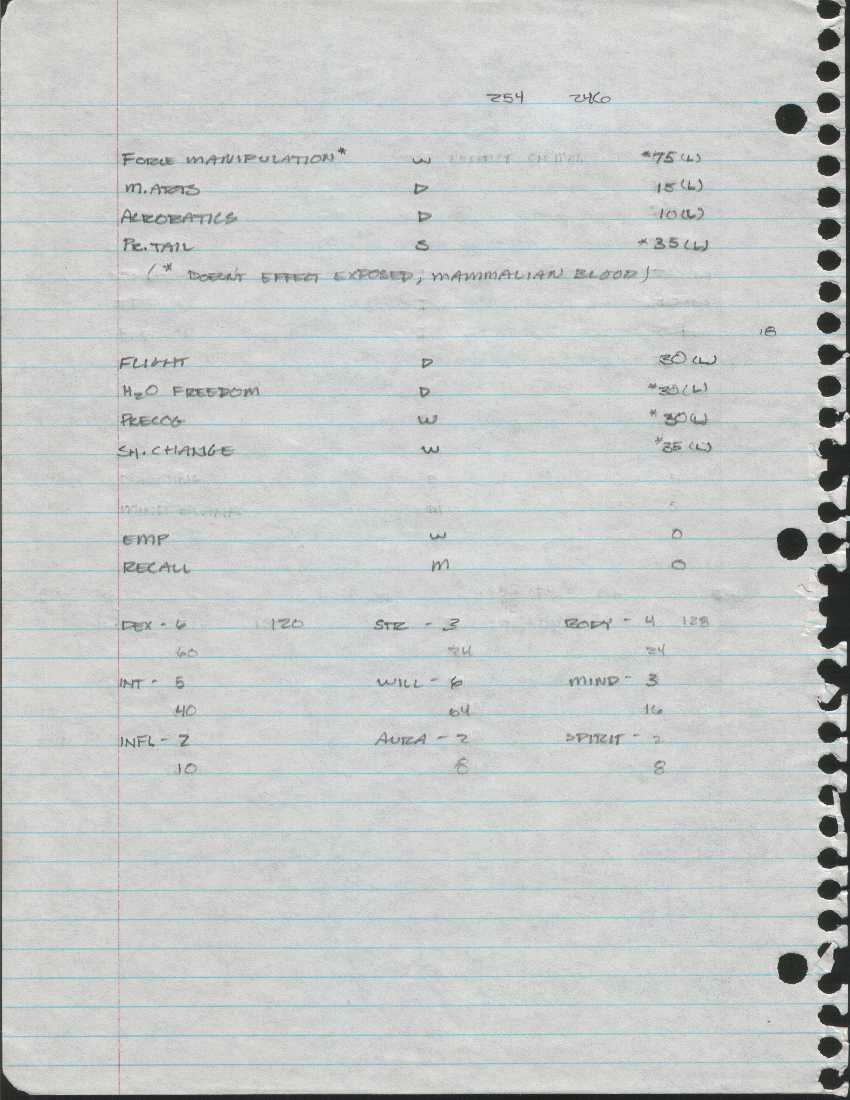 254 2460
FORCE MANIPULATION* W *75(L)
M.ARTS D 15(L)
ACROBATICS D 10(L)
PR.TAIL S *35(L)
(* DOESN'T EFFECT EXPOSED, MAMMALIAN BLOOD)
18
FLIGHT D 30(L)
H2O FREEDOM D *30(L)
PRECOG W *30(L)
SH.CHANGE W *35(L)
EMP W 0
RECALL M 0
DEX - 6 120 STR - 3 BODY - 4 128
60 24 24
INT - 5 WILL - 6 MIND - 3
40 64 16
INFL - 2 AURA - 2 SPIRIT - 2
10 8 8